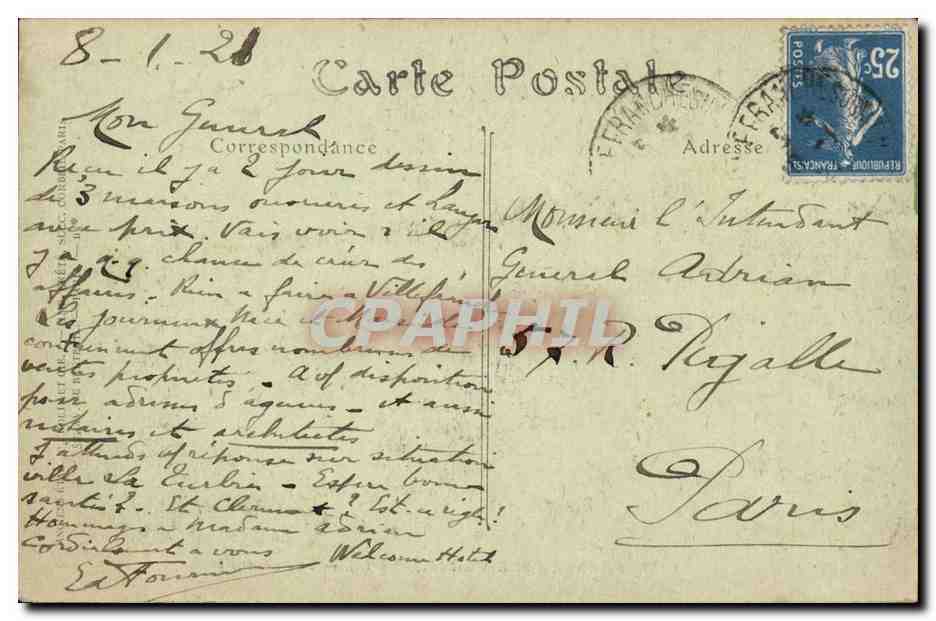 8-1.21
Carte Postale
Correspondance
Adresse
25c
POSTES
REPUBLIQUE FRANÇAISE
Mon General
Reçu il y a 2 jours dessin
de 3 maisons ouvrieres et
avec prix. Vais voir s'il
y a q.q. chance de créer des
affaires - Rien a faire a Villefranche
Les journaux Nice
contiennent offres nombreuses de
ventes proprietés - A vf disposition
pour adresses d'agences - et aussi
notaires et architectes
J'attends vf réponse sur situation
ville La Turbie - Espere bonne
santés? - Et Clermont? Est-ce réglé!
Hommages a Madame Adrian
Cordialement a vous Welcome Hotel
Ed
Monsieur l'Intendant
General Adrian
R. Pigalle
Paris
CPAPHIL